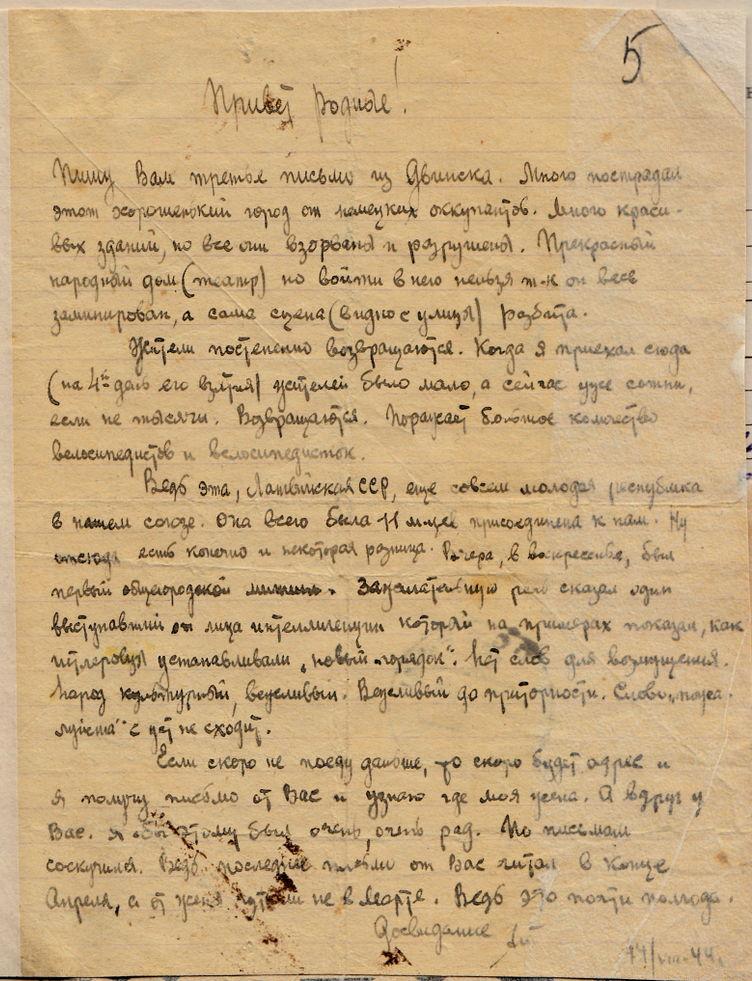 5
Привет родные!
Пишу Вам третье письмо из Двинска. Много пострадал
этот хорошенький город от немецких оккупантов. Много краси-
вых зданий, но все они взорваны и разрушены. Прекрасный
народный дом (театр) но войти в него нельзя т-к он весь
заминирован, а сама сцена (видно с улицы) разбита.
Жители постепенно возвращаются. Когда я приехал сюда
(на 4й день его взятия) жителей было мало, а сейчас уже сотни,
если не тысячи. Возвращаются. Поражает большое количество
велосипедистов и велосипедисток.
Ведь эта, Латвийская ССР, еще совсем молодая республика
в нашем союзе. Она всего была 11 м-цев присоединена к нам. Ну
есть конечно и некоторая разница. Вчера, в воскресенье, был
первый общегородской митинг. Замечательную речь сказал один
выступавший от лица интеллигенции который на примерах показал, как
гитлеровцы устанавливали „новый порядок“. Нет слов для возмущения.
Народ культурный, вежливый. Вежливый до приторности. Слово „пожа-
луйста“ с уст не сходит.
Если скоро не поеду дальше, то скоро будет адрес и
я получу письмо от Вас и узнаю где моя жена. А вдруг у
Вас. Я бы этому был очень, очень рад. По письмам
соскучился. Ведь последние письма от Вас читал в конце
Апреля, а от жены чуть ли не в Марте. Ведь это почти полгода.
Досвидание
14/VIII-44г.